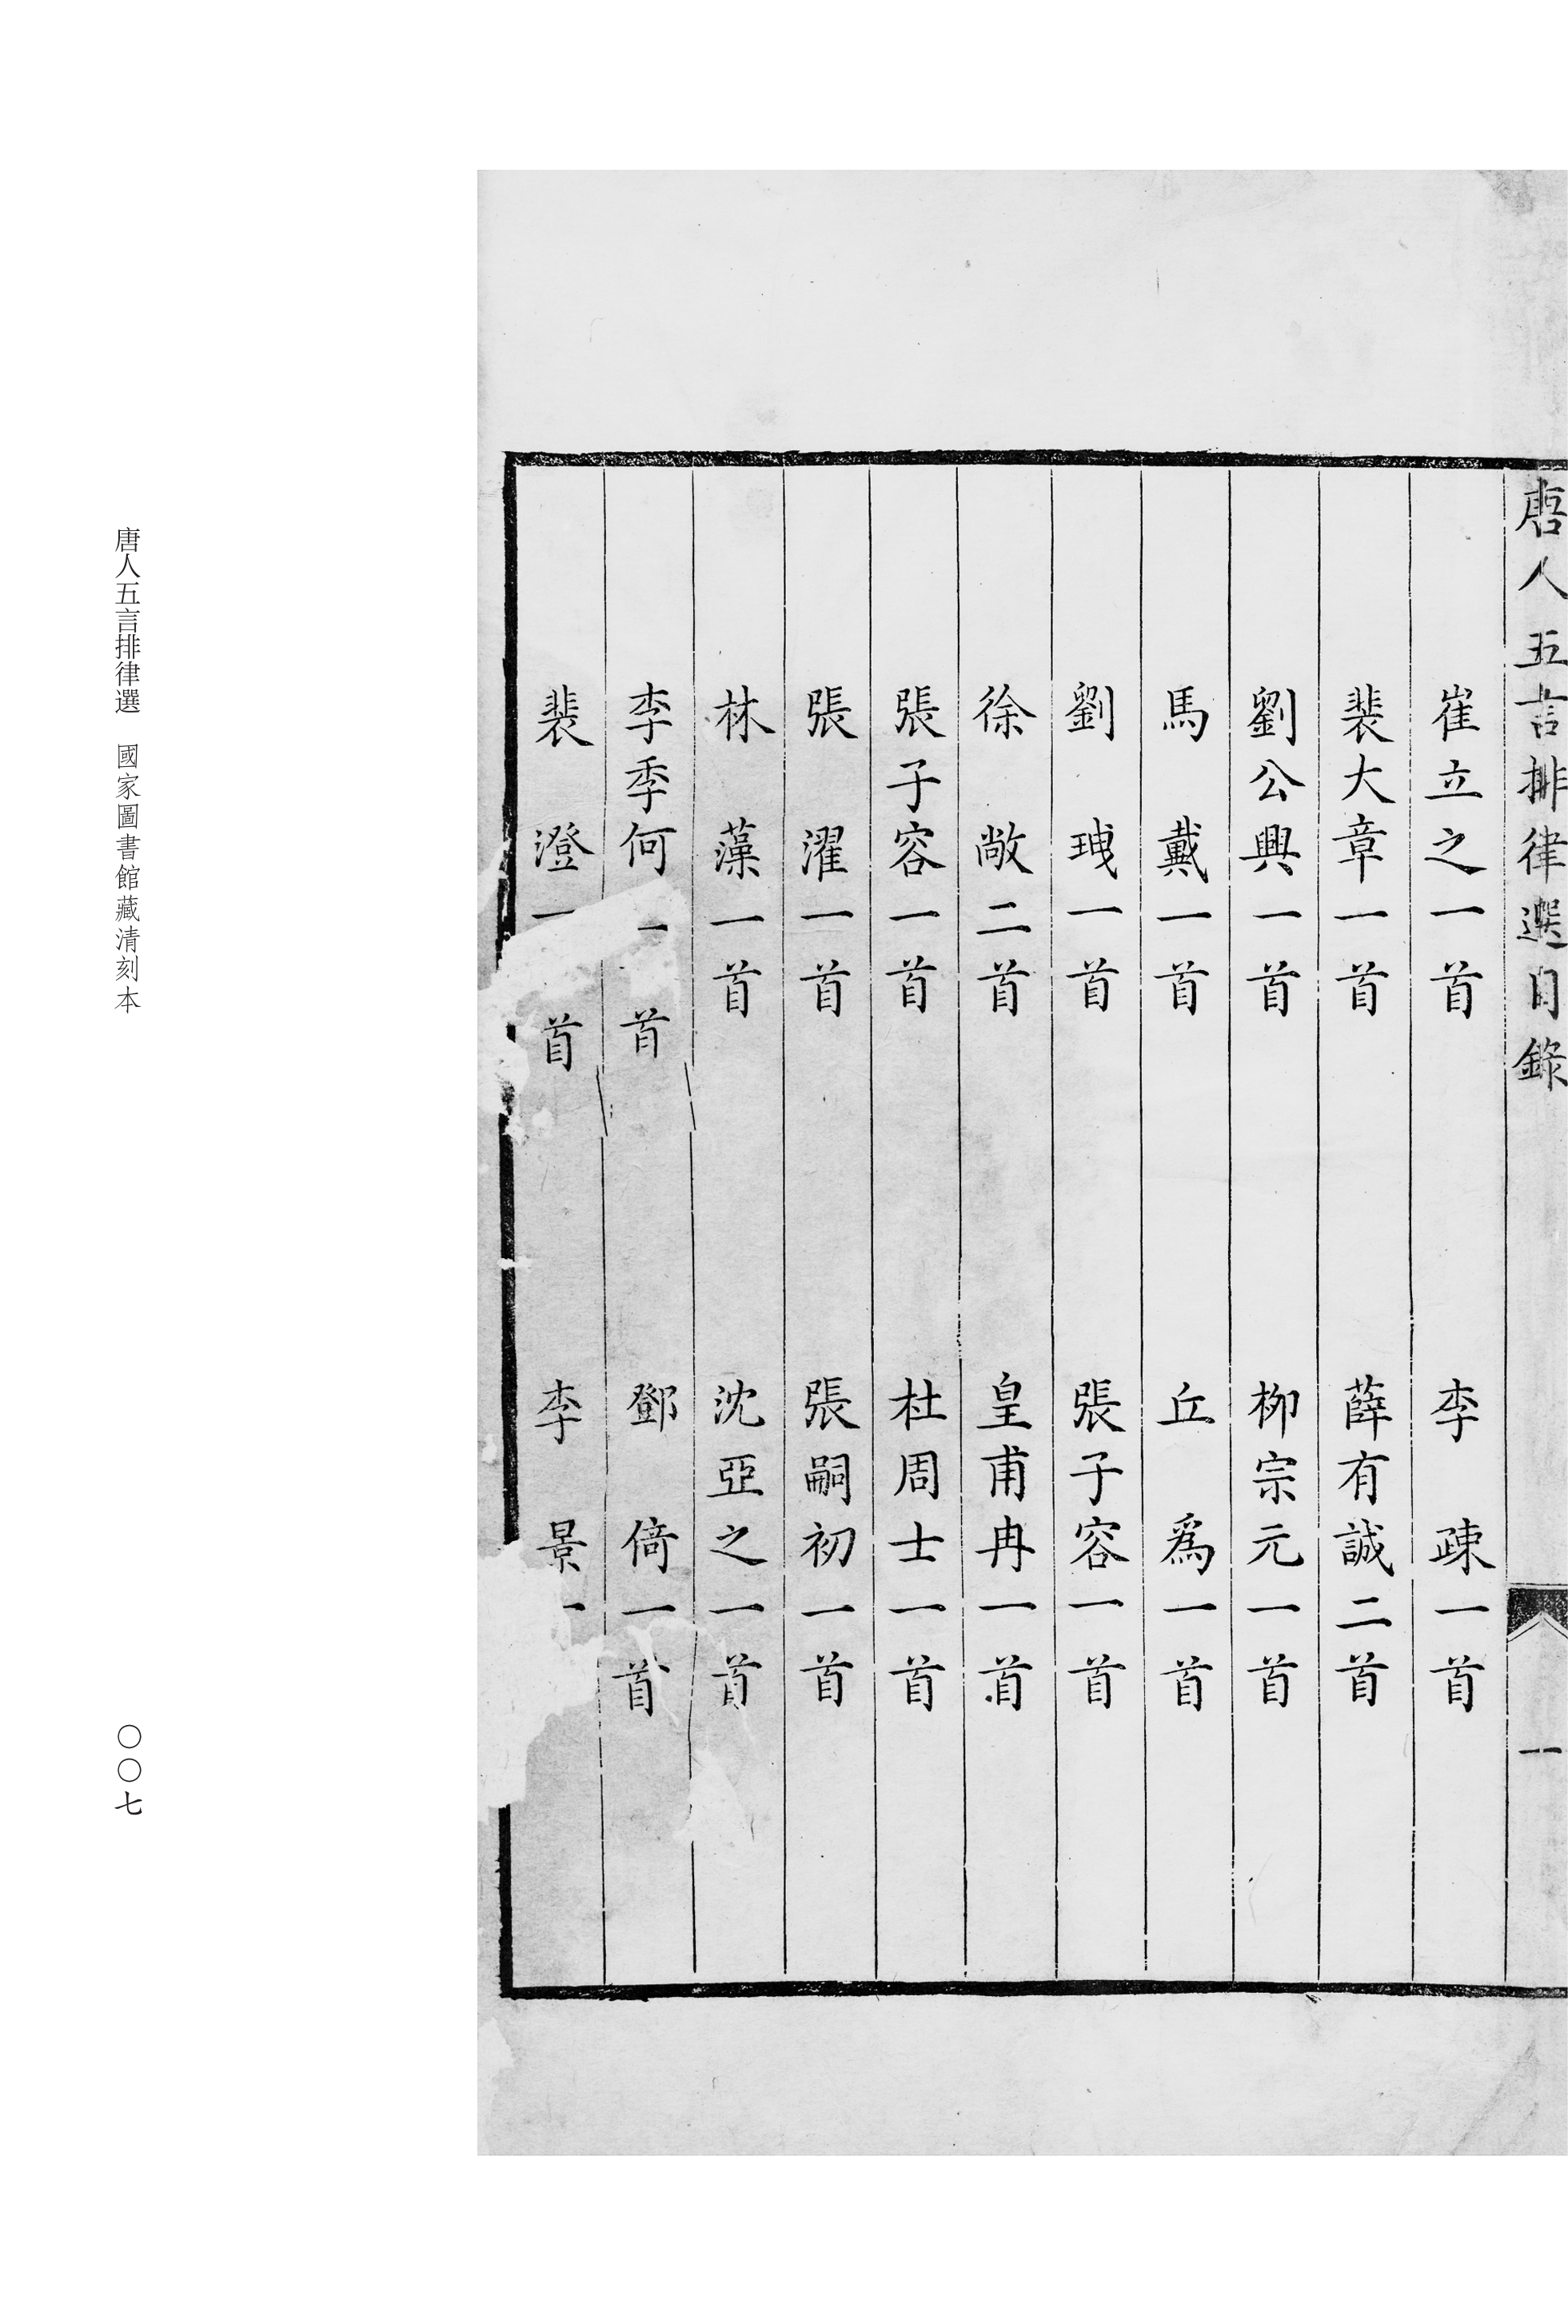 唐人五言排律選目錄 一
崔立之一首 李 疎一首
裴大章一首 薛有誠二首
劉公興一首 柳宗元一首
馬 戴一首 丘 爲一首
劉 㻛一首 張子容一首
徐 敞二首 皇甫冉一首
張子容一首 杜周士一首
張 濯一首 張嗣初一首
林 藻一首 沈亞之一首
李季何一首 鄧 倚一首
裴 澄一首 李 景一
唐人五言排律選 國家圖書館藏清刻本
〇〇七